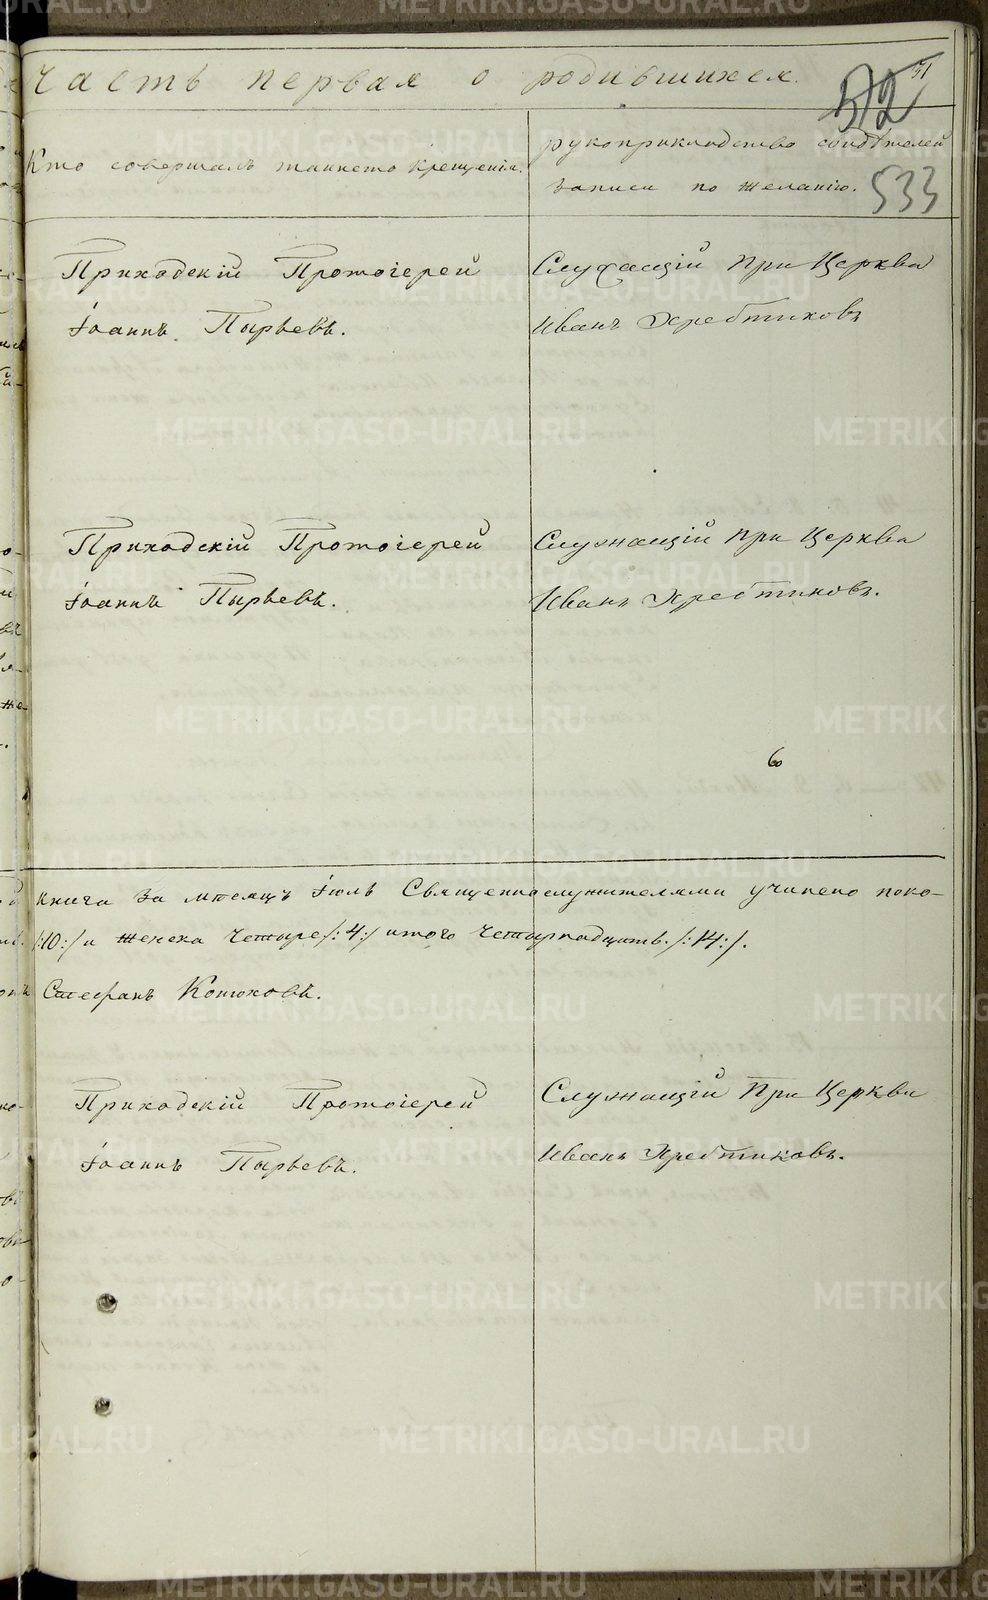 часть первая о родившихся.
51
572
533
Кто совершалъ таинсто крещенія.
рукоприкладство свидѣтелей
записи по желанію.
Приходскій Протоіерей
Іоаннъ Пырьевъ.
Служащій при Церкви
Иванъ Хребтиковъ
Приходскій Протоіерей
Іоаннъ Пырьевъ.
Служащій при Церкви
Иванъ Хребтиковъ.
книга за мѣсяцъ Іюль Священнослужителями учинено поко-
/:10:/ и женска четыре /:4:/ итого четырнадцать. /:14:/.
Стефанъ Конюховъ.
Приходскій Протоіерей
Іоаннъ Пырьевъ.
Служащій при Церкви
Иванъ Хребтиковъ.
METRIKI.GASO-URAL.RU